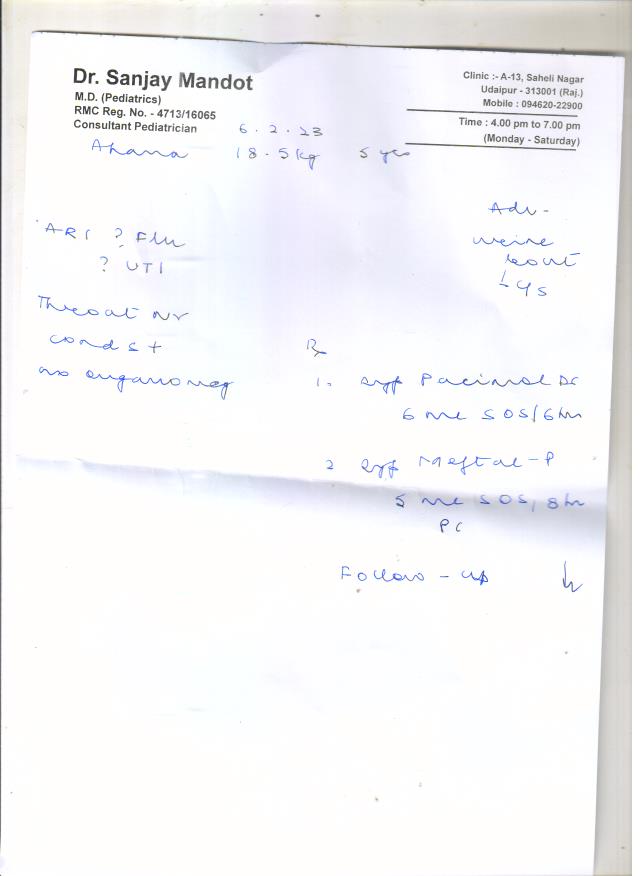 Dr. Sanjay Mandot
M.D. (Pediatrics)
RMC Reg. No. - 4713/16065
Consultant Pediatrician
Clinic :- A-13, Saheli Nagar
Udaipur - 313001 (Raj.)
Mobile : 094620-22900
Time : 4.00 pm to 7.00 pm
(Monday - Saturday)
6.2.23
Ahana 18.5kg 5 yrs
Adv -
ARI ? Flu
? UTI
Throat
no organomeg
Rx
1. syp
6 ml SOS/6hr
2 syp Meftal-P
5 ml SOS, 8hr
PC
Follow-up